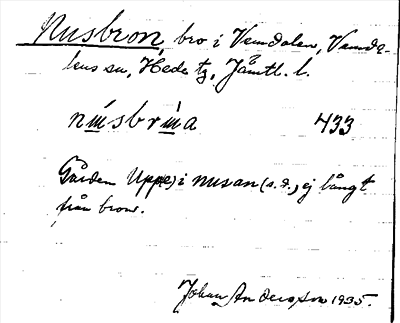 Nusbron, bro i Vemdalen, Vemda-
lens sn, Hede tg, Jämtl. l.
nusbrua 433
Gården Uppe) i nusan (s.d., ej långt
från bron.
Johan Andersson 1935.